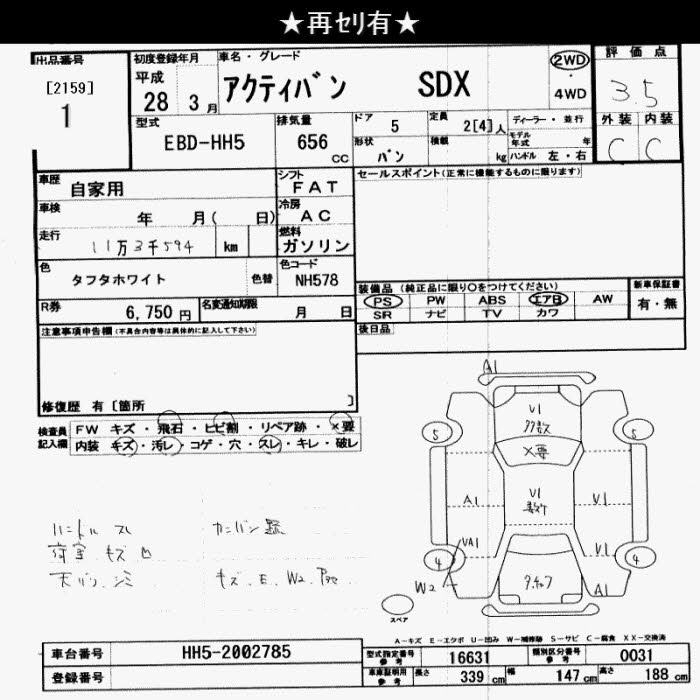 ★再セリ有★
出品番号
[2159]
1
初度登録年月
平成
28 3月
車名・グレード
アクティバン SDX
2WD
・
4WD
評価点
3.5
外装 内装
C C
型式
EBD-HH5
排気量
656
cc
ドア 5
定員 2[4]人
形状 バン
積載 kg
ディーラー・並行
モデル年式 年
ハンドル 左・右
車歴 自家用
シフト FAT
車検 年 月( 日)
冷房 AC
走行 11万3千594 km
燃料 ガソリン
色 タフタホワイト 色替
色コード NH578
R券 6,750円
名変通知期限 月 日
セールスポイント(正常に機能するものに限ります)
装備品(純正品に限り○をつけてください)
PS PW ABS エアB AW
SR ナビ TV カワ
新車保証書
有・無
後日品
注意事項申告欄(不具合内容等は具体的に記入して下さい)
修復歴 有〔箇所 〕
検査員記入欄
FW キズ・飛石・ヒビ割・リペア跡・X要
内装 キズ・汚レ・コゲ・穴・スレ・キレ・破レ
ハンドル スレ
荷室 キズ 凹
天バリ シミ
キズ.E.W2.
A1
U1
多数
X要
5 5
A1
U1
数ケ
U1
UA1
U1
4 4
W2
A1
スペア
A-キズ E-エクボ U-凹み W-補修跡 S-サビ C-腐食 XX-交換済
車台番号 HH5-2002785
登録番号
型式指定番号 参考 16631
類別区分番号 参考 0031
車庫証明用 参考
長さ 339 cm
幅 147 cm
高さ 188 cm